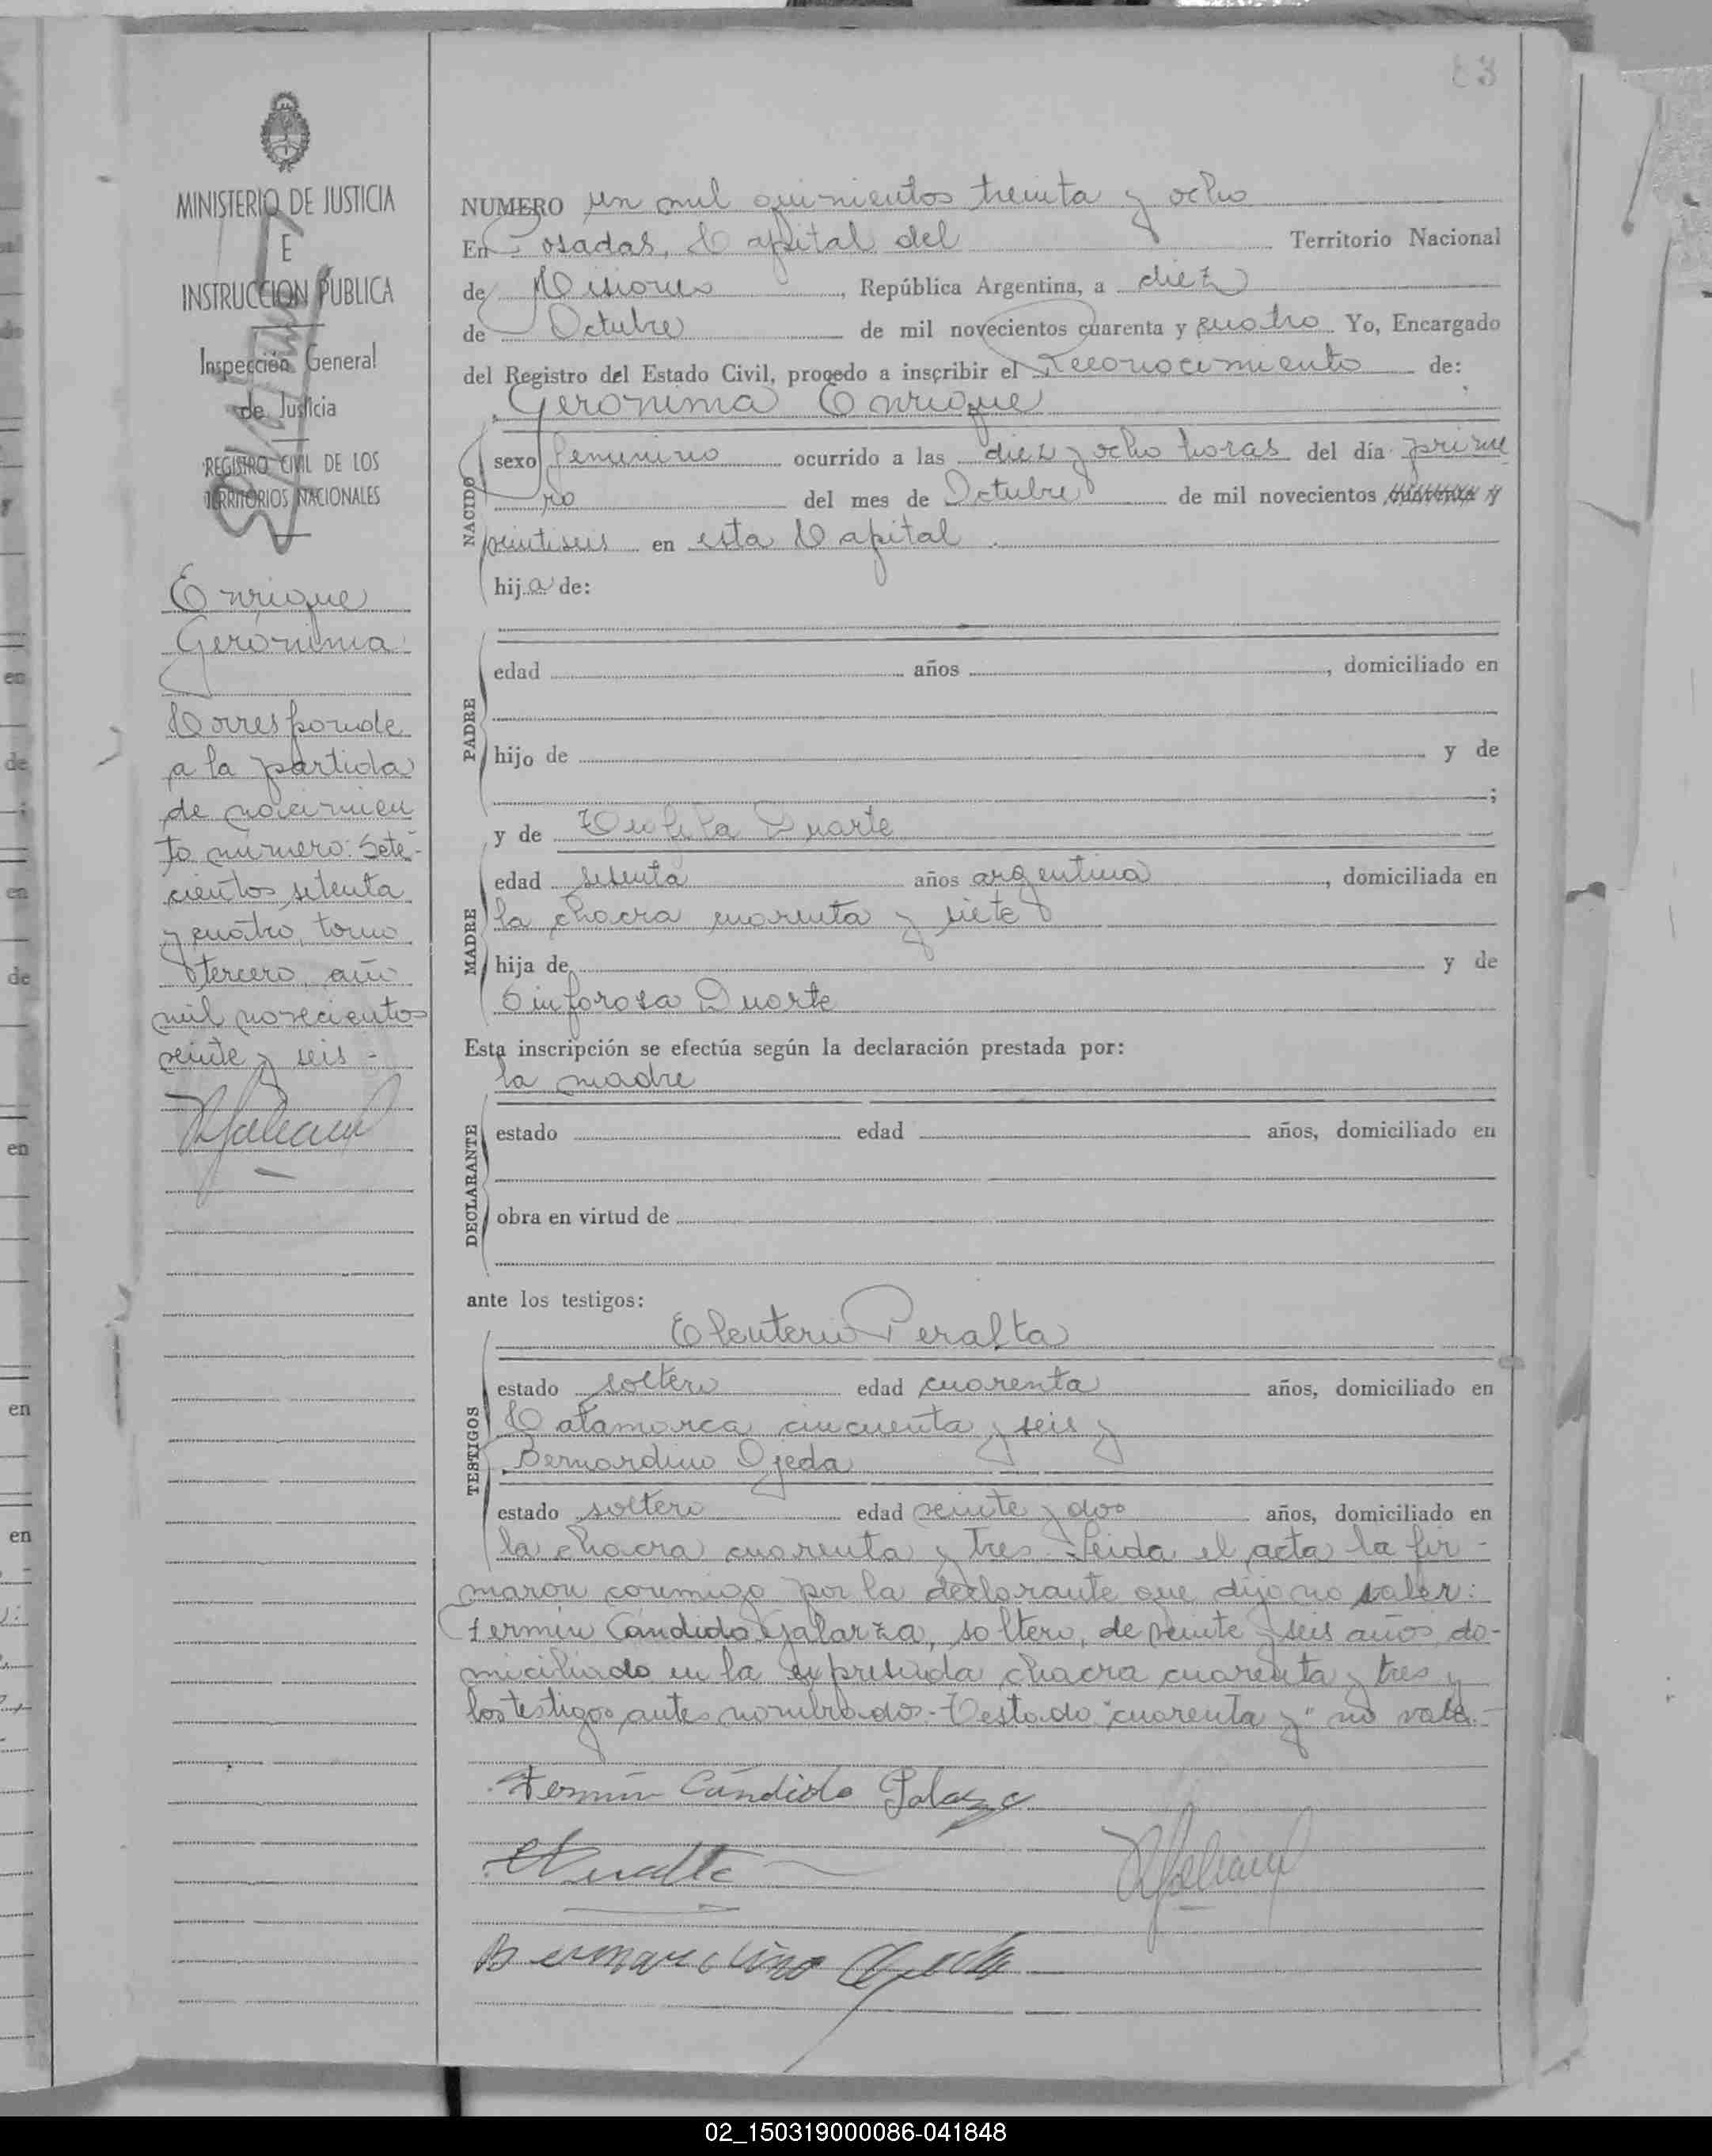 83
MINISTERIO DE JUSTICIA
E
INSTRUCCION PUBLICA
Inspección General
de Justicia
REGISTRO CIVIL DE LOS
TERRITORIOS NACIONALES
Enrique
Gerónima
Corresponde
a la partida
de nacimien
to número: Sete-
cientos setenta
y cuatro, tomo
tercero, año
mil novecientos
veinte y seis -
NUMERO un mil quinientos treinta y ocho
En Posadas, Capital del Territorio Nacional
de Misiones, República Argentina, a diez
de Octubre de mil novecientos cuarenta y cuatro Yo, Encargado
del Registro del Estado Civil, procedo a inscribir el Reconocimiento de:
Geronima Enrique
NACIDO
sexo femenino ocurrido a las diez y ocho horas del día prime
ro del mes de Octubre de mil novecientos cuarenta y
veintiseis en esta Capital.
hija de:
PADRE
edad años , domiciliado en
hijo de y de
;
y de Teofila Duarte
MADRE
edad sesenta años argentina, domiciliada en
la chacra cuarenta y siete
hija de y de
Sinforosa Duarte
Esta inscripción se efectúa según la declaración prestada por:
la madre
DECLARANTE
estado edad años, domiciliado en
obra en virtud de
ante los testigos:
Eleuterio Peralta
TESTIGOS
estado soltero edad cuarenta años, domiciliado en
Catamarca cincuenta y seis y
Bernardino Ojeda
estado soltero edad veinte y dos años, domiciliado en
la chacra cuarenta y tres. Leida el acta la fir-
maron conmigo por la declarante que dijo no saber:
Fermin Cándido Galarza, soltero, de veinte y seis años, do-
miciliado en la expresada chacra cuarenta y tres y
los testigos antes nombrados.- Testado "cuarenta y" no vale.-
Fermín Cándido Galarza
EPeralta
Bernardino Ojeda
02_150319000086-041848